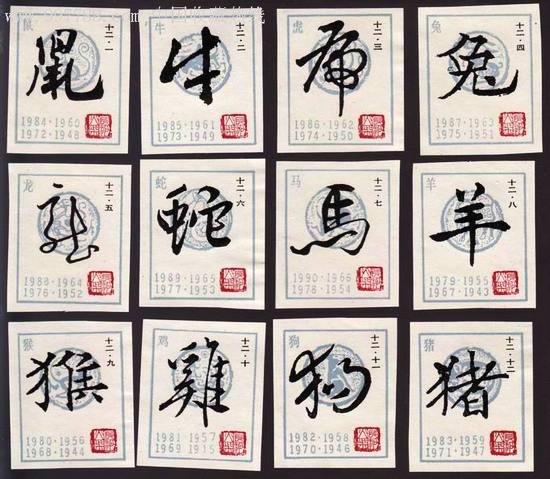 鼠
十二·一
鼠
1984·1960
1972·1948
牛
十二·二
牛
1985·1961
1973·1949
虎
十二·三
虎
1986·1962
1974·1950
兔
十二·四
兔
1987·1963
1975·1951
龙
十二·五
龍
1988·1964
1976·1952
蛇
十二·六
蛇
1989·1965
1977·1953
马
十二·七
馬
1990·1966
1978·1954
羊
十二·八
羊
1979·1955
1967·1943
猴
十二·九
猴
1980·1956
1968·1944
鸡
十二·十
雞
1981·1957
1969 1915
狗
十二·十一
狗
1982·1958
1970·1946
猪
十二·十二
猪
1983·1959
1971·1947